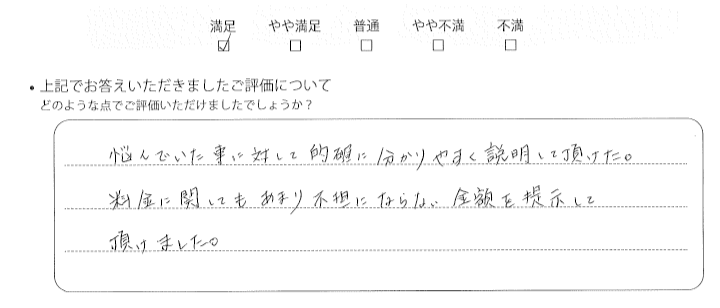 満足 やや満足 普通 やや不満 不満
☑ □ □ □ □
• 上記でお答えいただきましたご評価について
どのような点でご評価いただけましたでしょうか？
悩んでいた事に対して的確に分かりやすく説明して頂けた。
料金に関してもあまり不担にならない金額を提示して
頂けました。